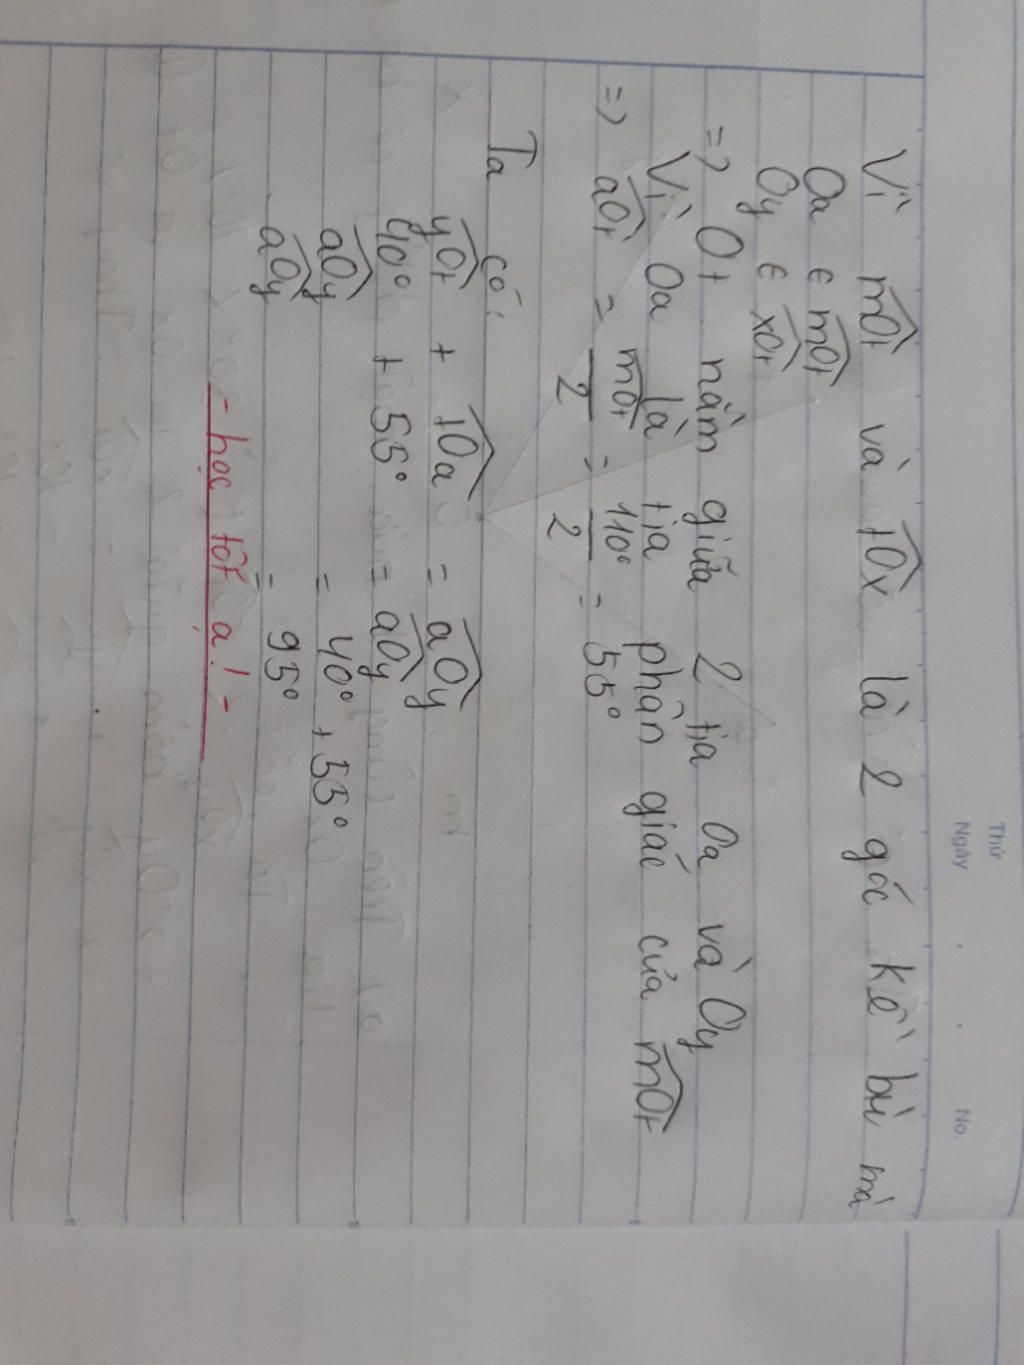 Thứ
Ngày . . No.
Vì mOt và tOx là 2 góc kề bù mà
Oa ∈ mOt
Oy ∈ xOt
=> Ot nằm giữa 2 tia Oa và Oy
Vì Oa là tia phân giác của mOt
=> aOt = mOt/2 = 110°/2 = 55°
Ta có:
yOt + tOa = aOy
40° + 55° = aOy
aOy = 40° + 55°
aOy = 95°
- học tốt ạ! -